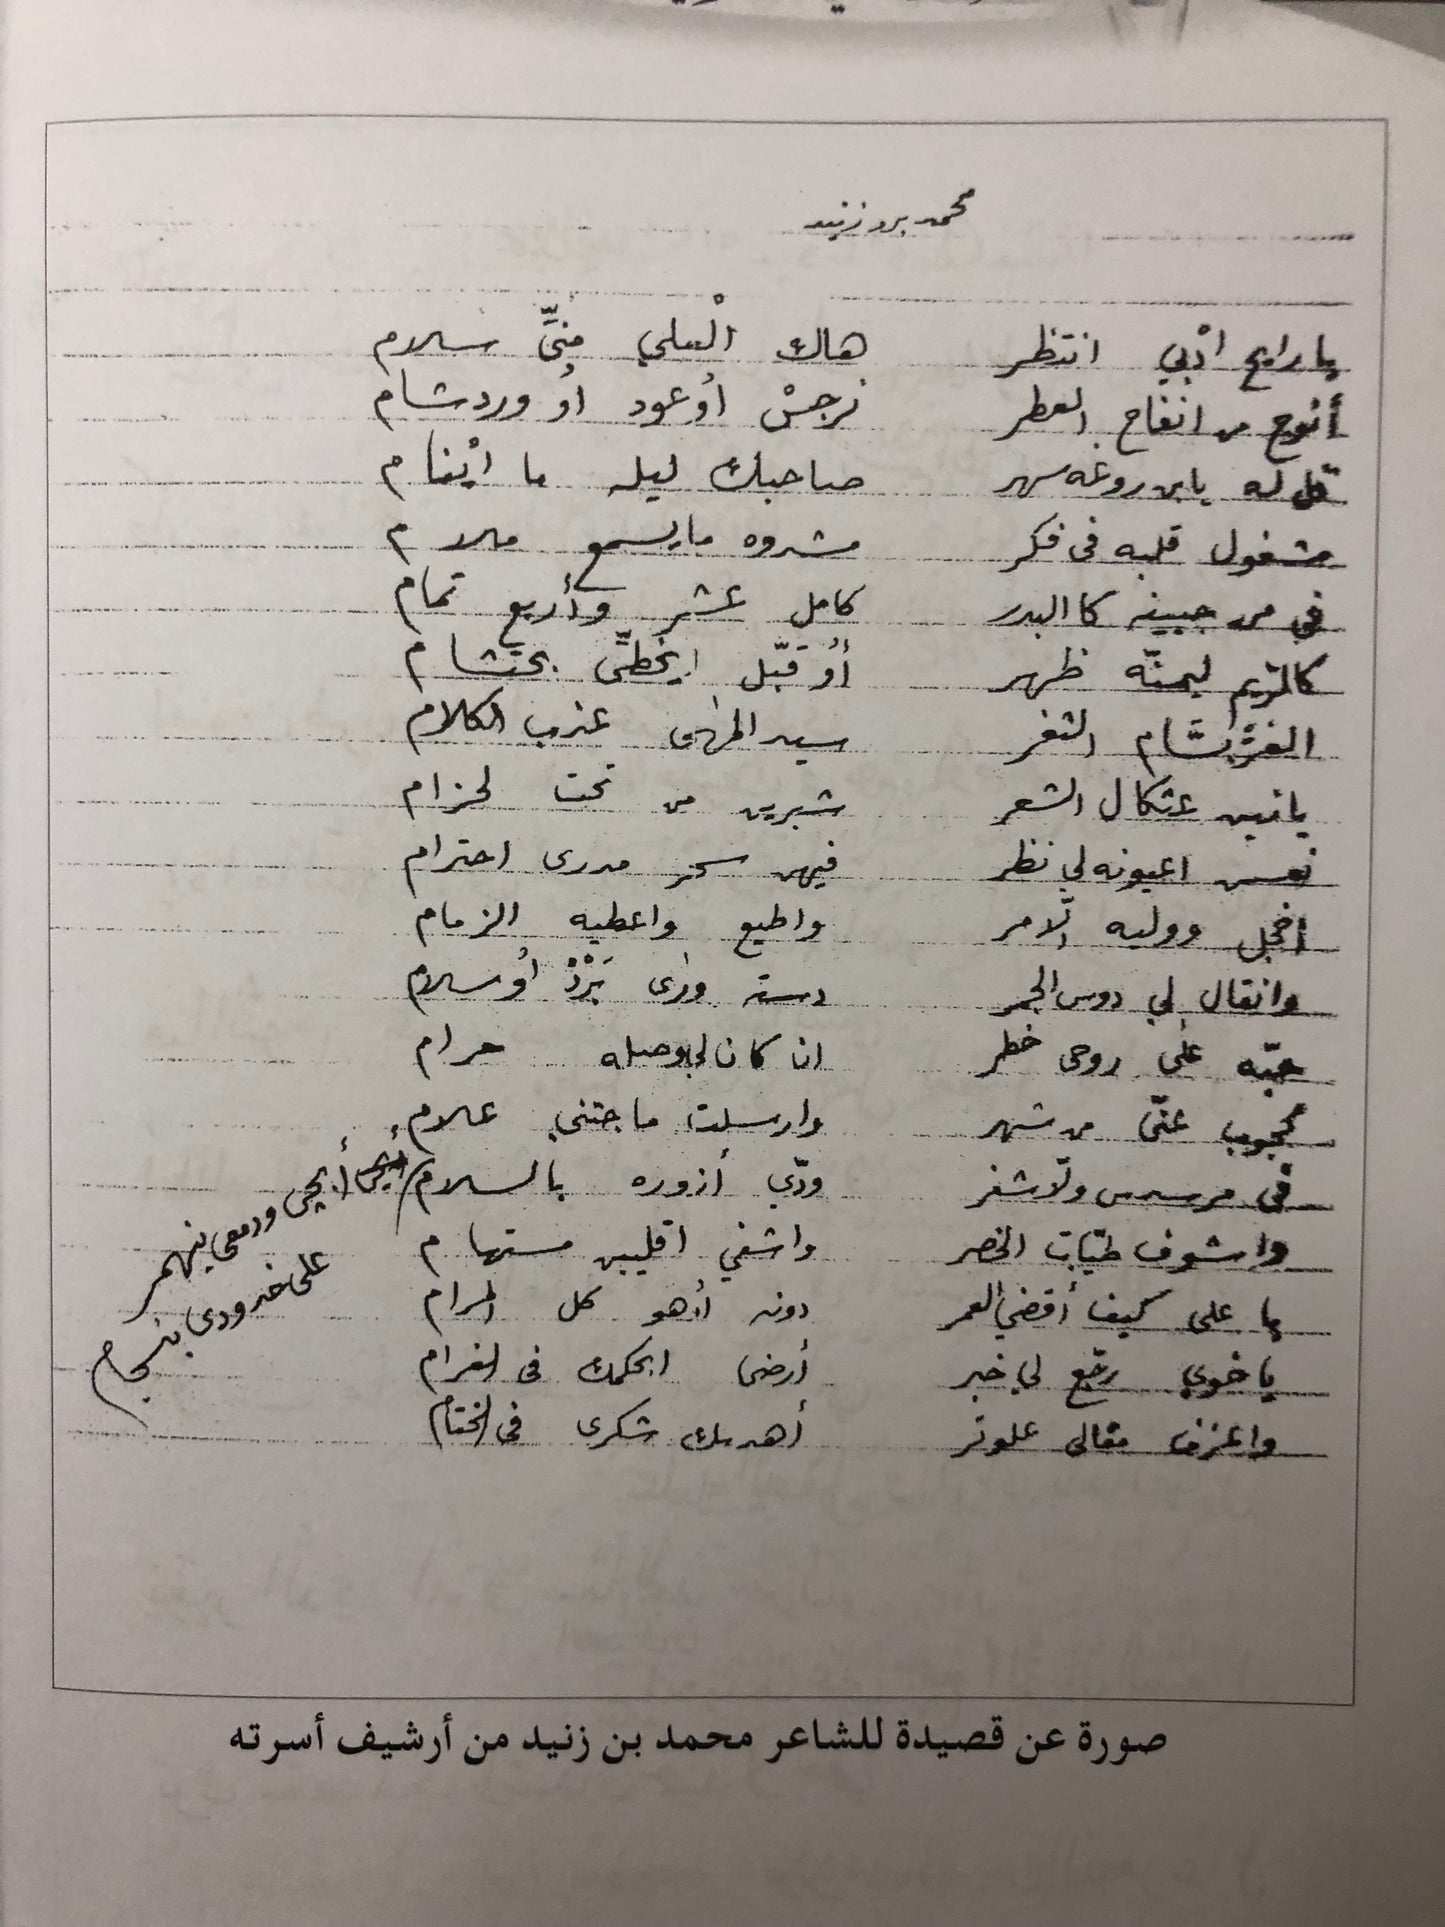 محمد بن زنيد
يا رايح ادْبي انتظر هاك الْعلي مُنِّي سلام
أنوح من انفاح العطر نرجسْ أو عود أو ورد شام
قل له يا بن روغه سهر صاحبك ليله ما ايْنام
مشغول قلبه في فكر مشدوه ما يسمع ملام
في من جبينه كا البدر كامل عشر وأربع تمام
كالرّيم ليمنّه ظهر أوُ قبّل ايخطّي بحتشام
الغرّ بسّام الثغر سيد المهى عذب الكلام
يا نيس عثكال الشعر شبرين من تحت لحزام
نعس اعيونه لي نظر فيهن سحر مدري احترام
اخجل ووليه الّامر واطيع واعطيه الزمام
وانقال لي دوس الجمر دسته ورٰى بَرْدْ أو سلام
حبّه على روحي خطر ان كان لي بوصله حرام
محجوب عنّي من شهر وارسلت ما جتني علام
في مرسدس ولّا شفر ودّي أزوره بالسلام
أبجي أبجي ودمعي ينهمر
على خدودي بنسجام
واشوف طيّات الخصر واشفي اقليبن مستهام
يا علي كيف أقضي العمر دونه أو هو كل المرام
يا خوي رجّع لي خبر أرضى ابحكمك في لغرام
واعزف مقالي علوتر أهديك شكري في لختام
صورة عن قصيدة للشاعر محمد بن زنيد من أرشيف أسرته